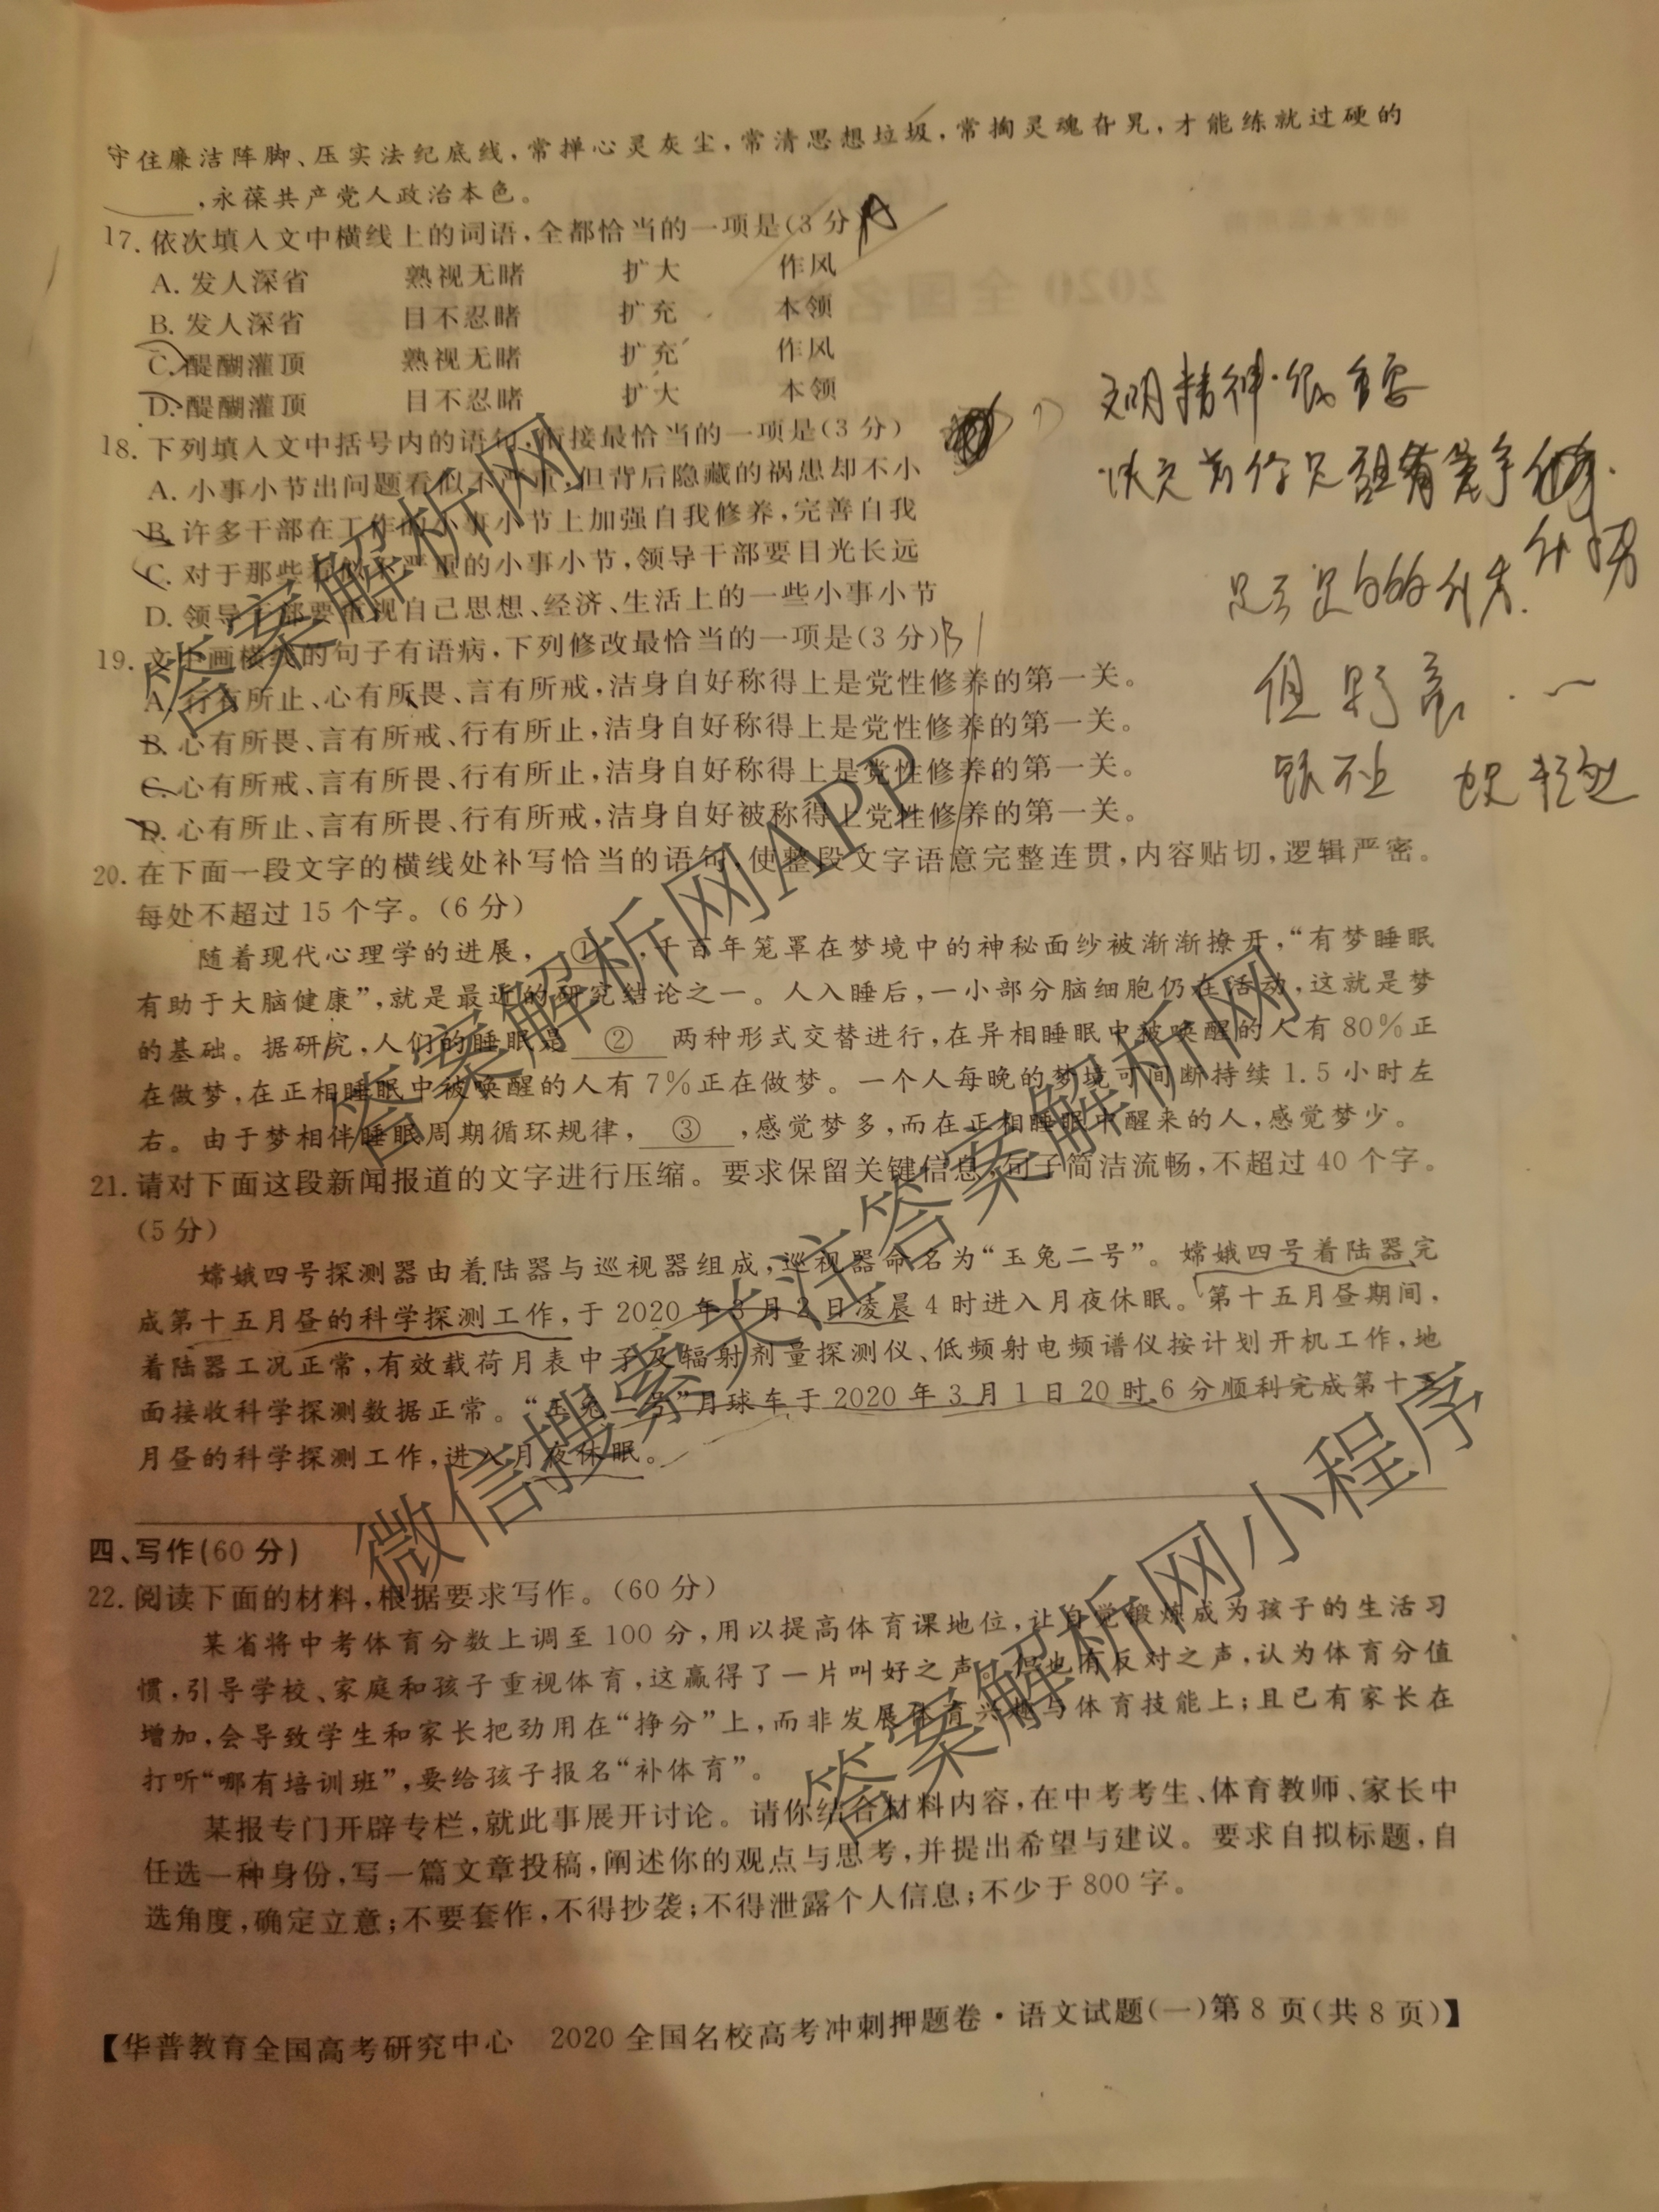 守住廉洁阵脚、压实法纪底线，常掸心灵灰尘，常清思想垃圾，常掏灵魂旮旯，才能练就过硬的
______，永葆共产党人政治本色。
17. 依次填入文中横线上的词语，全都恰当的一项是（3分）A
A. 发人深省 熟视无睹 扩大 作风
B. 发人深省 目不忍睹 扩充 本领
C. 醍醐灌顶 熟视无睹 扩充 作风
D. 醍醐灌顶 目不忍睹 扩大 本领
18. 下列填入文中括号内的语句，衔接最恰当的一项是（3分）
A. 小事小节出问题看似不严重，但背后隐藏的祸患却不小
B. 许多干部在工作的小事小节上加强自我修养，完善自我
C. 对于那些看似不严重的小事小节，领导干部要目光长远
D. 领导干部要重视自己思想、经济、生活上的一些小事小节
19. 文中画横线的句子有语病，下列修改最恰当的一项是（3分）B
A. 行有所止、心有所畏、言有所戒，洁身自好称得上是党性修养的第一关。
B. 心有所畏、言有所戒、行有所止，洁身自好称得上是党性修养的第一关。
C. 心有所戒、言有所畏、行有所止，洁身自好称得上是党性修养的第一关。
D. 心有所止、言有所畏、行有所戒，洁身自好被称得上党性修养的第一关。
20. 在下面一段文字的横线处补写恰当的语句，使整段文字语意完整连贯，内容贴切，逻辑严密。
每处不超过15个字。（6分）
随着现代心理学的进展，①，千百年笼罩在梦境中的神秘面纱被渐渐撩开，“有梦睡眠
有助于大脑健康”，就是最近的研究结论之一。人入睡后，一小部分脑细胞仍在活动，这就是梦
的基础。据研究，人们的睡眠是②两种形式交替进行，在异相睡眠中被唤醒的人有80%正
在做梦，在正相睡眠中被唤醒的人有7%正在做梦。一个人每晚的梦境可间断持续1.5小时左
右。由于梦相伴睡眠周期循环规律，③，感觉梦多，而在正相睡眠中醒来的人，感觉梦少。
21. 请对下面这段新闻报道的文字进行压缩。要求保留关键信息，句子简洁流畅，不超过40个字。
（5分）
嫦娥四号探测器由着陆器与巡视器组成，巡视器命名为“玉兔二号”。嫦娥四号着陆器完
成第十五月昼的科学探测工作，于2020年3月2日凌晨4时进入月夜休眠。第十五月昼期间，
着陆器工况正常，有效载荷月表中子及辐射剂量探测仪、低频射电频谱仪按计划开机工作，地
面接收科学探测数据正常。“玉兔二号”月球车于2020年3月1日20时6分顺利完成第十五
月昼的科学探测工作，进入月夜休眠。
四、写作（60分）
22. 阅读下面的材料，根据要求写作。（60分）
某省将中考体育分数上调至100分，用以提高体育课地位，让自觉锻炼成为孩子的生活习
惯，引导学校、家庭和孩子重视体育，这赢得了一片叫好之声。但也有反对之声，认为体育分值
增加，会导致学生和家长把劲用在“挣分”上，而非发展体育兴趣与体育技能上；且已有家长在
打听“哪有培训班”，要给孩子报名“补体育”。
某报专门开辟专栏，就此事展开讨论。请你结合材料内容，在中考考生、体育教师、家长中
任选一种身份，写一篇文章投稿，阐述你的观点与思考，并提出希望与建议。要求自拟标题，自
选角度，确定立意；不要套作，不得抄袭；不得泄露个人信息；不少于800字。
【华普教育全国高考研究中心 2020全国名校高考冲刺押题卷·语文试题（一）第8页（共8页）】
答案解析网
答案解析网APP
微信搜索关注答案解析网
答案解析网小程序